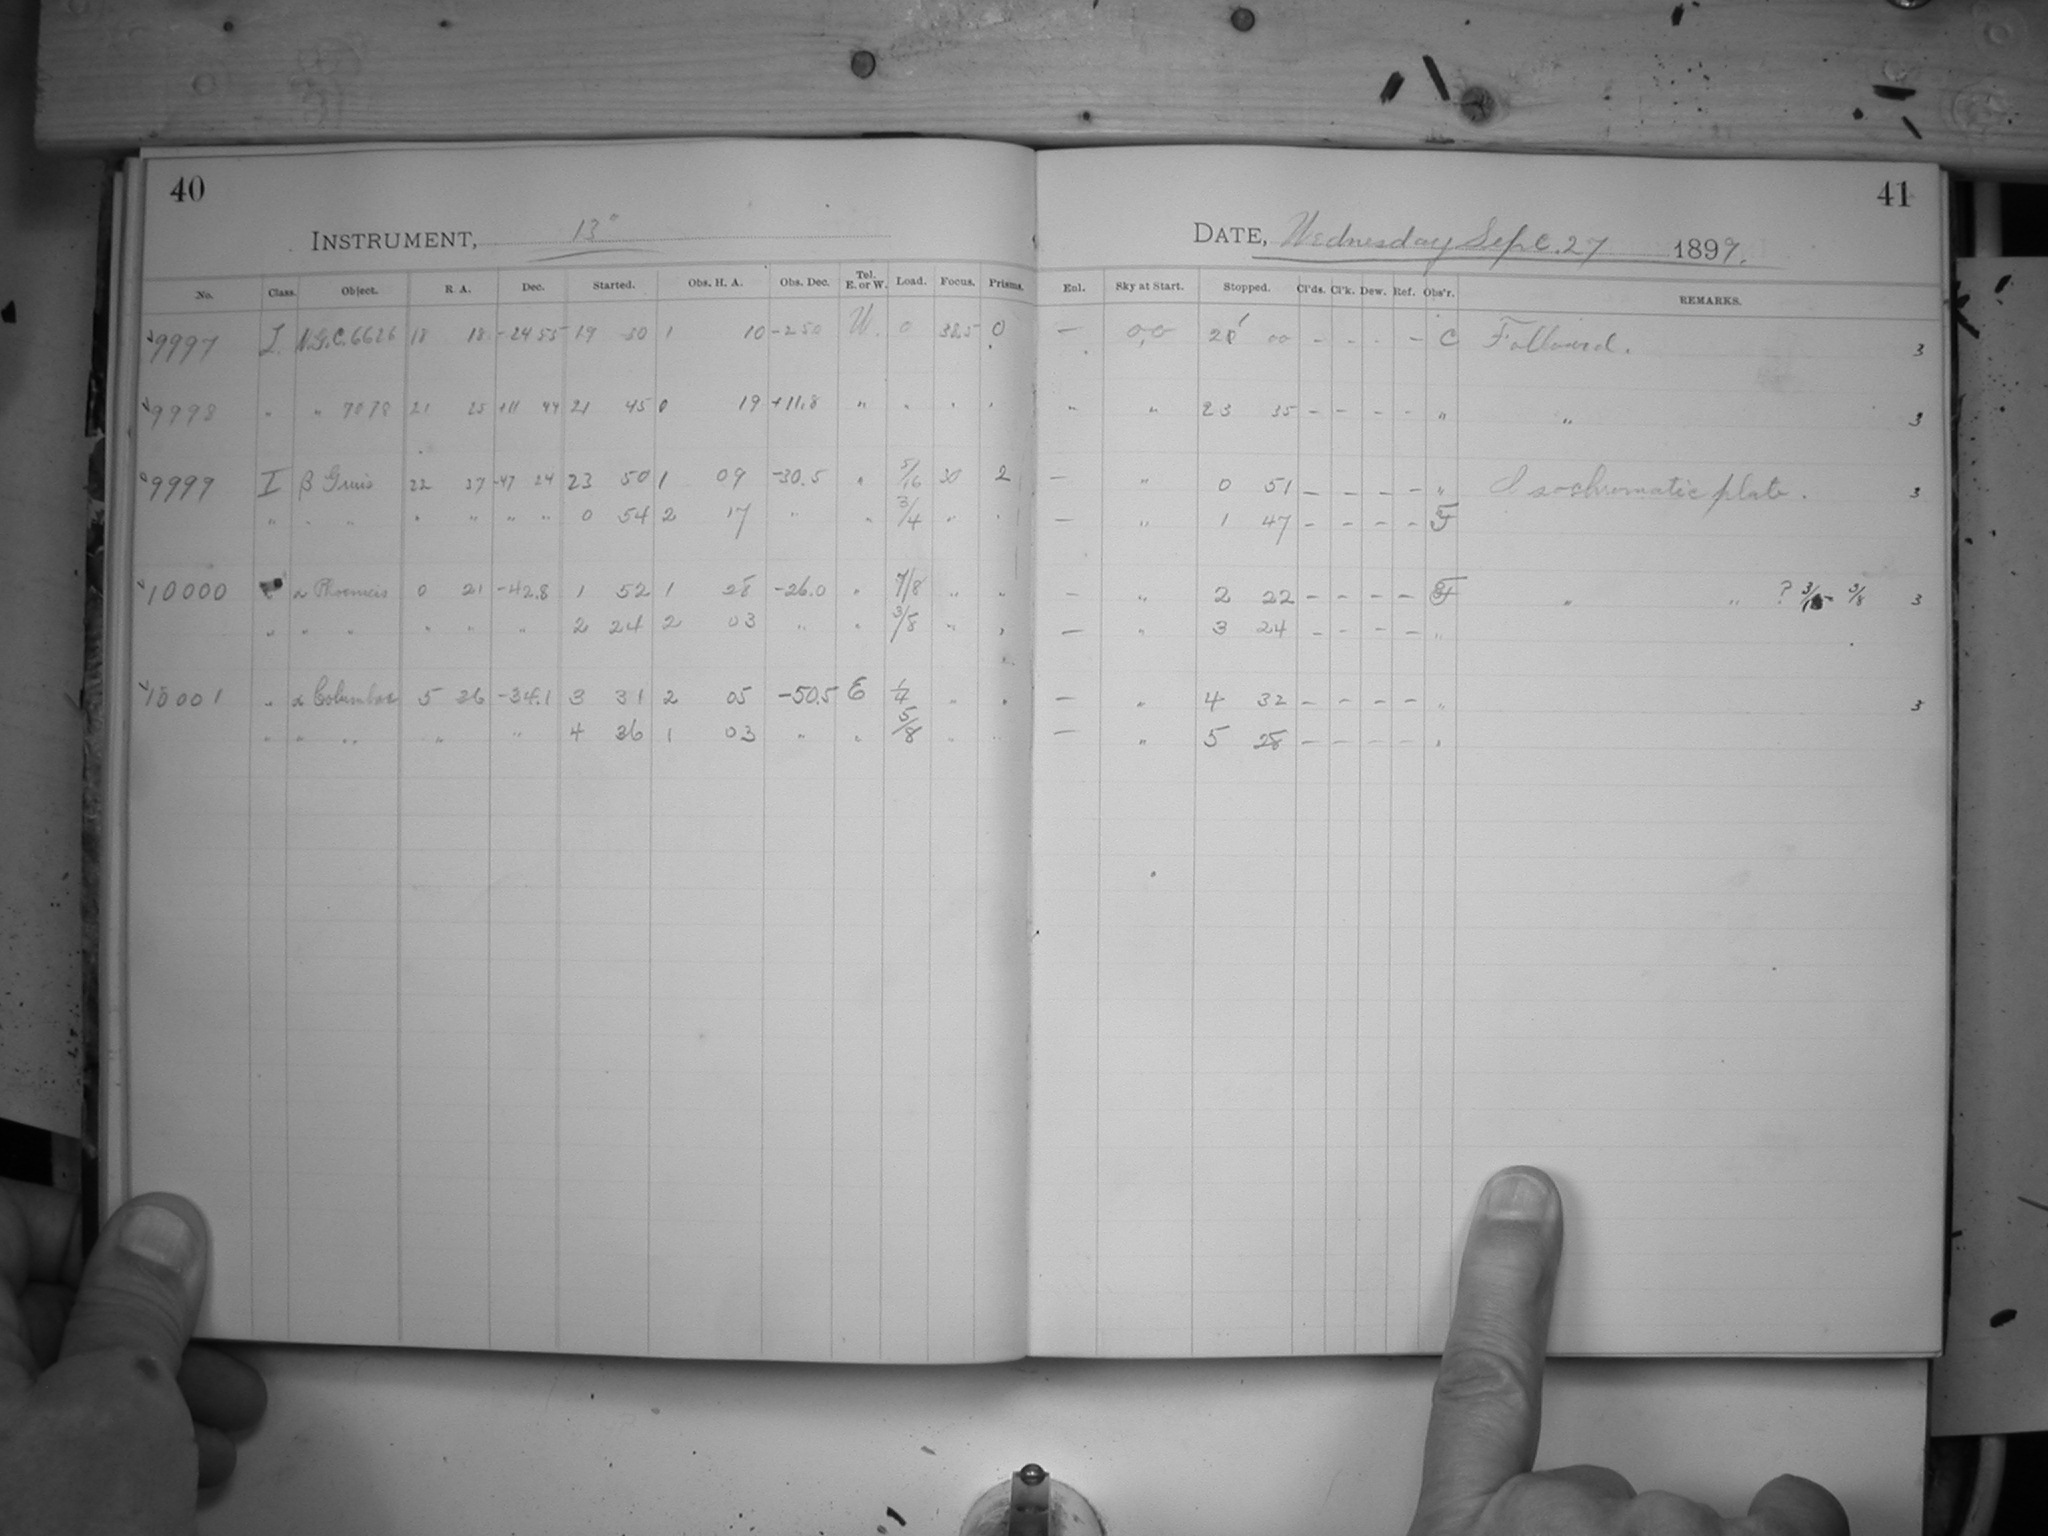 40
41
INSTRUMENT, 13"
DATE, Wednesday Sept. 27 1899.
No. Class. Object. R. A. Dec. Started. Obs. H. A. Obs. Dec. Tel. E. or W. Load. Focus. Prisms. Enl. Sky at Start. Stopped. Cl'ds. Cl'k. Dew. Ref. Obs'r. REMARKS.
9997 I N.G.C. 6626 18 18 -24 55 19 50 1 10 -25 0 W. 0 38.5 0 — 0,0 00 - - - - C Followed. 3
9998 " " 7078 21 25 +11 44 21 45 0 19 +11.8 " " " " " " 23 35 - - - - " " 3
9999 I β Gruis 22 37 -47 24 23 50 1 09 -30.5 " 5/16 30 2 — " 0 51 - - - - " Isochromatic plate. 3
" " " " " " " 0 54 2 17 " " 3/4 " " — " 1 47 - - - - F
10000 α Phoenicis 0 21 -42.8 1 52 1 28 -26.0 " 7/8 " " - " 2 22 - - - - F " " ? 3/8 3
" " " " " " 2 24 2 03 " " 3/8 " " — " 3 24 - - - - "
10001 " α Columbae 5 36 -34.1 3 31 2 05 -50.5 E 1/4 " " — " 4 32 - - - - " 3
" " " " " 4 36 1 03 " " 5/8 " " — " 5 28 - - - - "